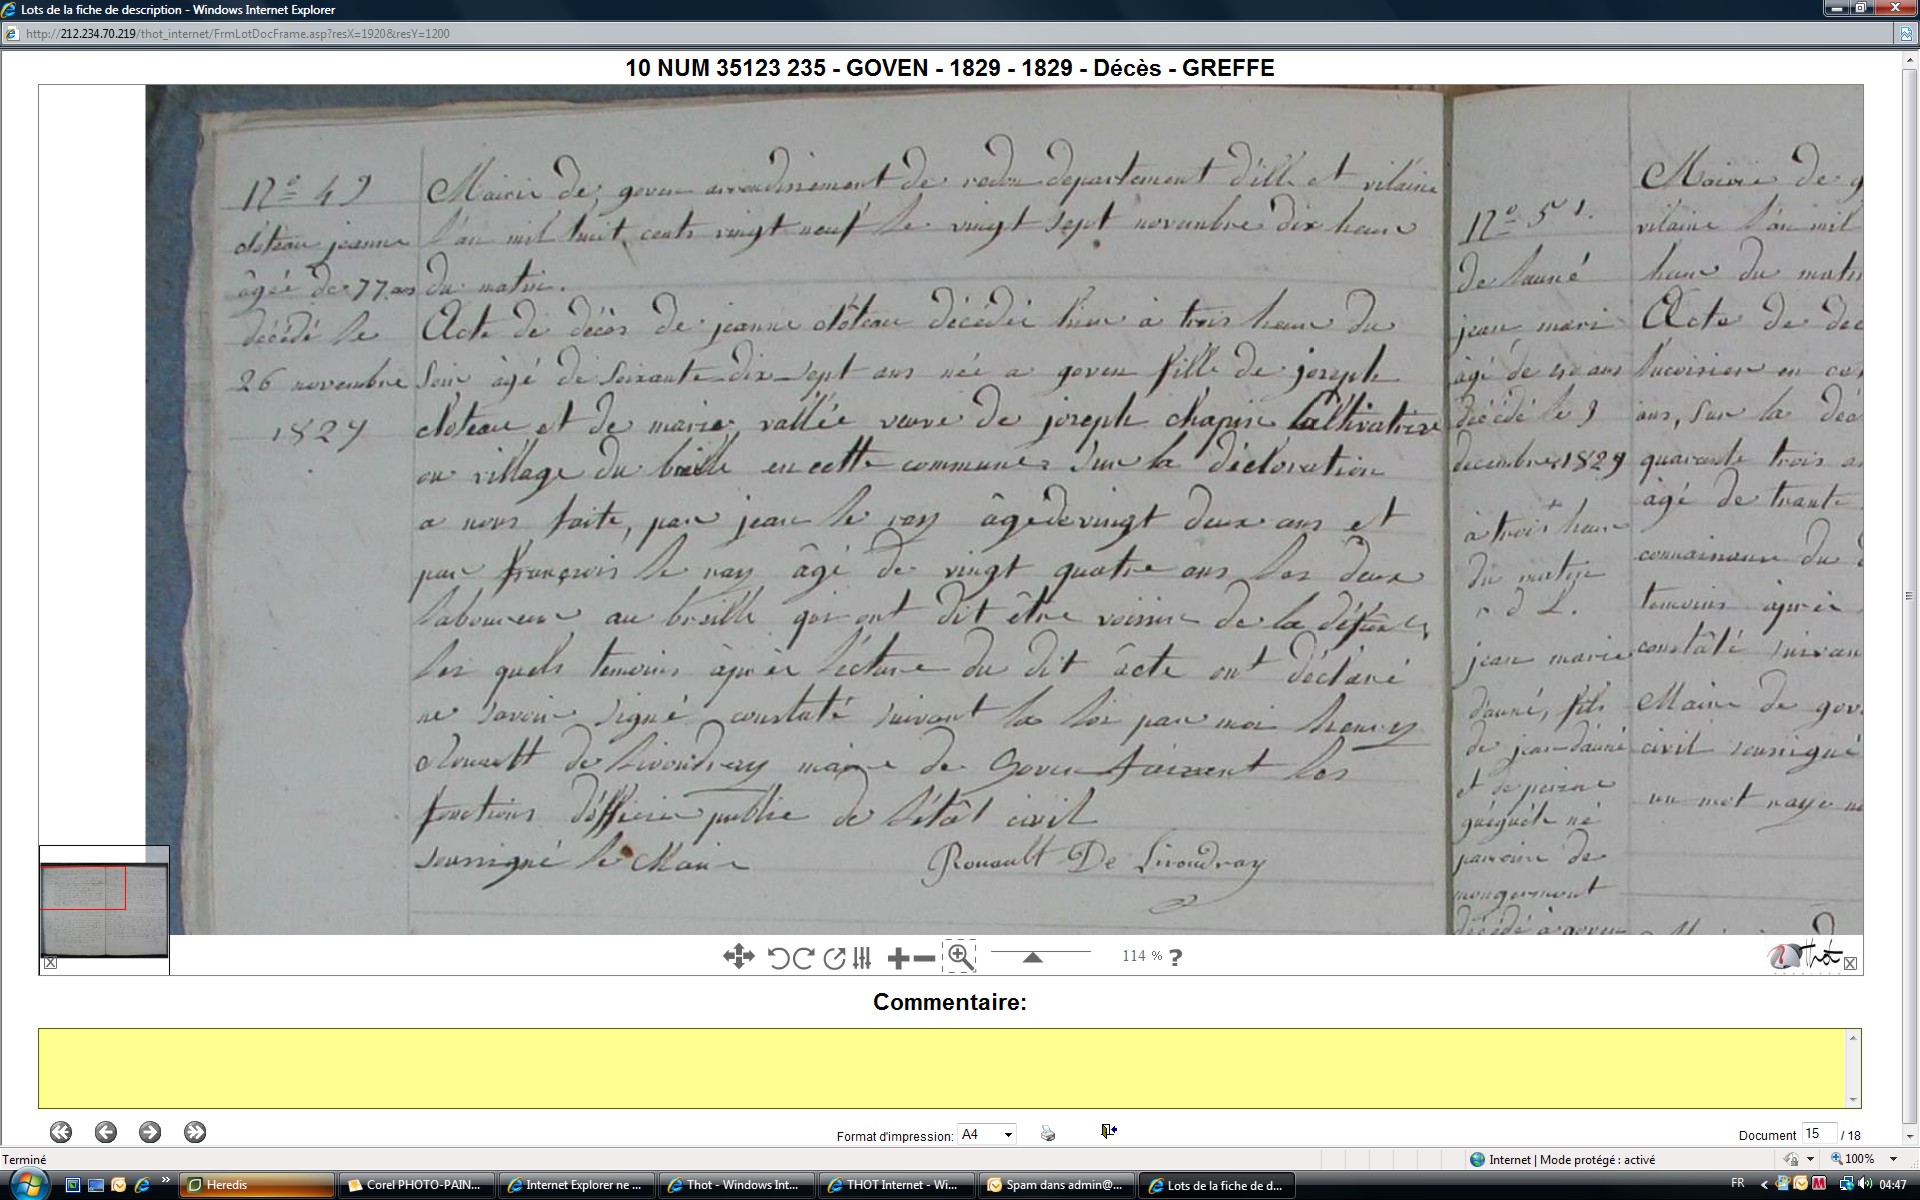 Lots de la fiche de description - Windows Internet Explorer
http://212.234.70.219/thot_internet/FrmLotDocFrame.asp?resX=1920&resY=1200
10 NUM 35123 235 - GOVEN - 1829 - 1829 - Décès - GREFFE
Nº 49
cloteau jeanne
âgée de 77 ans
décédé le
26 novembre
1829
Mairie de goven arrondissement de redon departement d'ille et vilaine
l'an mil huit cents vingt neuf le vingt sept novembre dix heure
du matin.
Acte de décès de jeanne clôteau décédée hier à trois heure du
soir âgé de soixante dix sept ans née a goven fille de joseph
cloteau et de marie vallée veuve de joseph chapin Cultivatrice
au village du breille en cette commune sur la déclaration
a nous faite, par jean le ray âgé de vingt deux ans et
par françois le ray âgé de vingt quatre ans les deux
laboureur au breille qui ont dit être voisin de la défunte,
les quels temoins âprèr lécture du dit âcte ont déclaré
ne savoir signé constaté suivant la loi par moi henry
Rouault de livoudray maire de Goven faisant les
fonctions d'officier publie de l'étât civil
soussigné le Maire
Rouault De Livoudray
Nº 51.
de launé
jean mari
âgé de 40 ans
décédé le 9
decembre 1829
à trois heure
du matin
r d L.
jean marie
daané, fils
de jean daané
et de perine
né
paroisse de
mongermont
décédé à goven
Mairie de g
vilaine l'an mil
heure du matin
Acte de dec
ans, sur la déc
quarante trois a
âgé de trante
connaisseur du d
temoins âprèr
constâté suivan
Maire de gov
civil soussigné
un mot rayé n
114 % ?
Thot
Commentaire:
Format d'impression: A4
Document 15 / 18
Terminé
Internet | Mode protégé : activé
100%
Heredis
Corel PHOTO-PAIN...
Internet Explorer ne ...
Thot - Windows Int...
THOT Internet - Wi...
Spam dans admin@...
Lots de la fiche de d...
FR
04:47